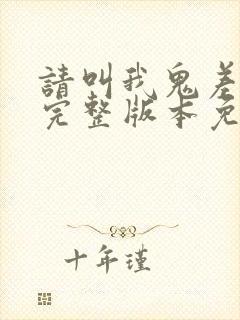 請叫我鬼差
完整版本免
十年瑾